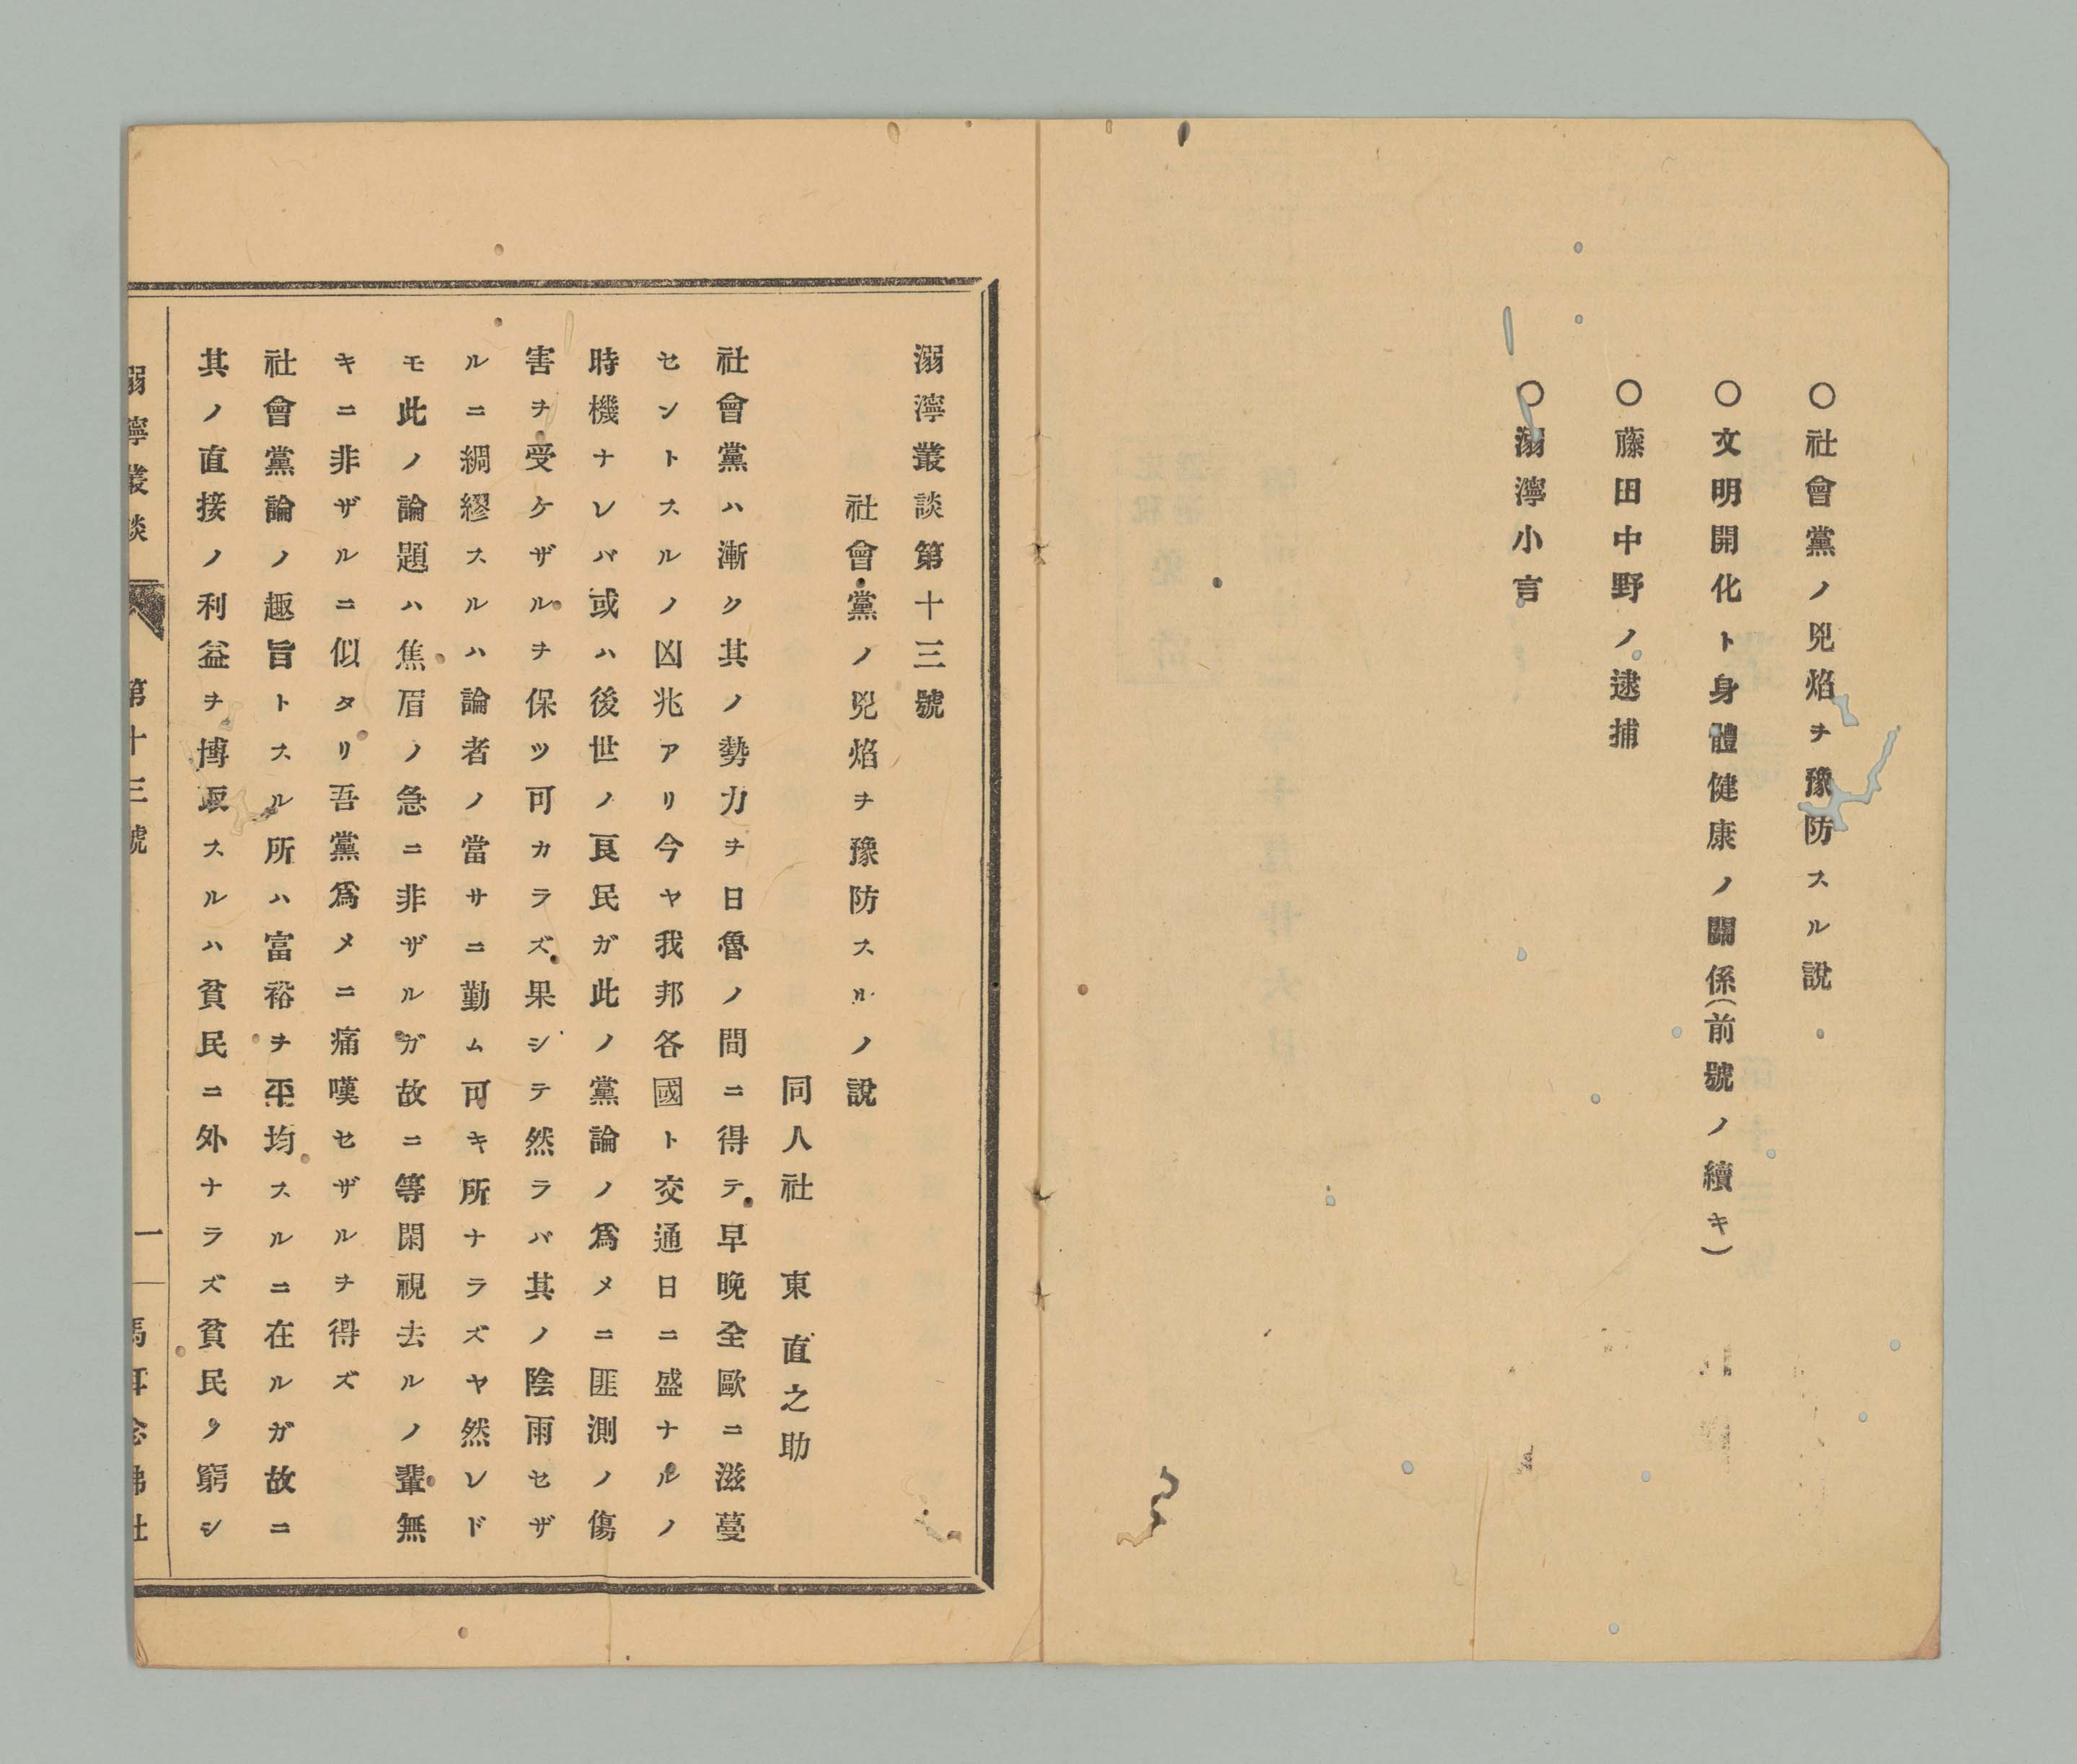 〇社會黨ノ兇焰ヲ豫防スル說
〇文明開化ト身體健康ノ關係(前號ノ續キ)
〇藤田中野ノ逮捕
〇溺濘小言
溺濘叢談第十三號
社會黨ノ兇焰ヲ豫防スルノ說
同人社 東直之助
社會黨ハ漸ク其ノ勢力ヲ日魯ノ間ニ得テ早晩全歐ニ滋蔓
セントスルノ凶兆アリ今ヤ我邦各國ト交通日ニ盛ナルノ
時機ナレバ或ハ後世ノ良民ガ此ノ黨論ノ爲メニ匪測ノ傷
害ヲ受ケザルヲ保ツ可カラズ果シテ然ラバ其ノ陰雨セザ
ルニ綢繆スルハ論者ノ當サニ勤ム可キ所ナラズヤ然レド
モ此ノ論題ハ焦眉ノ急ニ非ザルガ故ニ等閑視去ルノ輩無
キニ非ザルニ似タリ吾黨爲メニ痛嘆セザルヲ得ズ
社會黨論ノ趣旨トスル所ハ富裕ヲ平均スルニ在ルガ故ニ
其ノ直接ノ利益ヲ博取スルハ貧民ニ外ナラズ貧民ノ窮シ
溺濘叢談 第十三號 一 馬耳念佛社